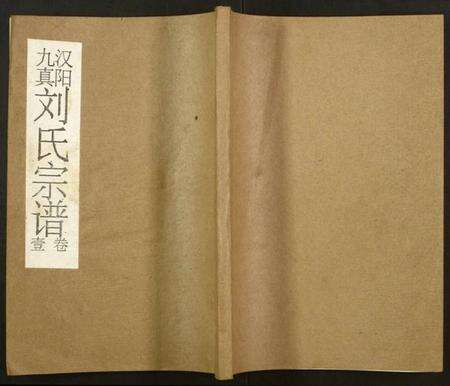 汉阳九真
刘氏宗谱
卷壹